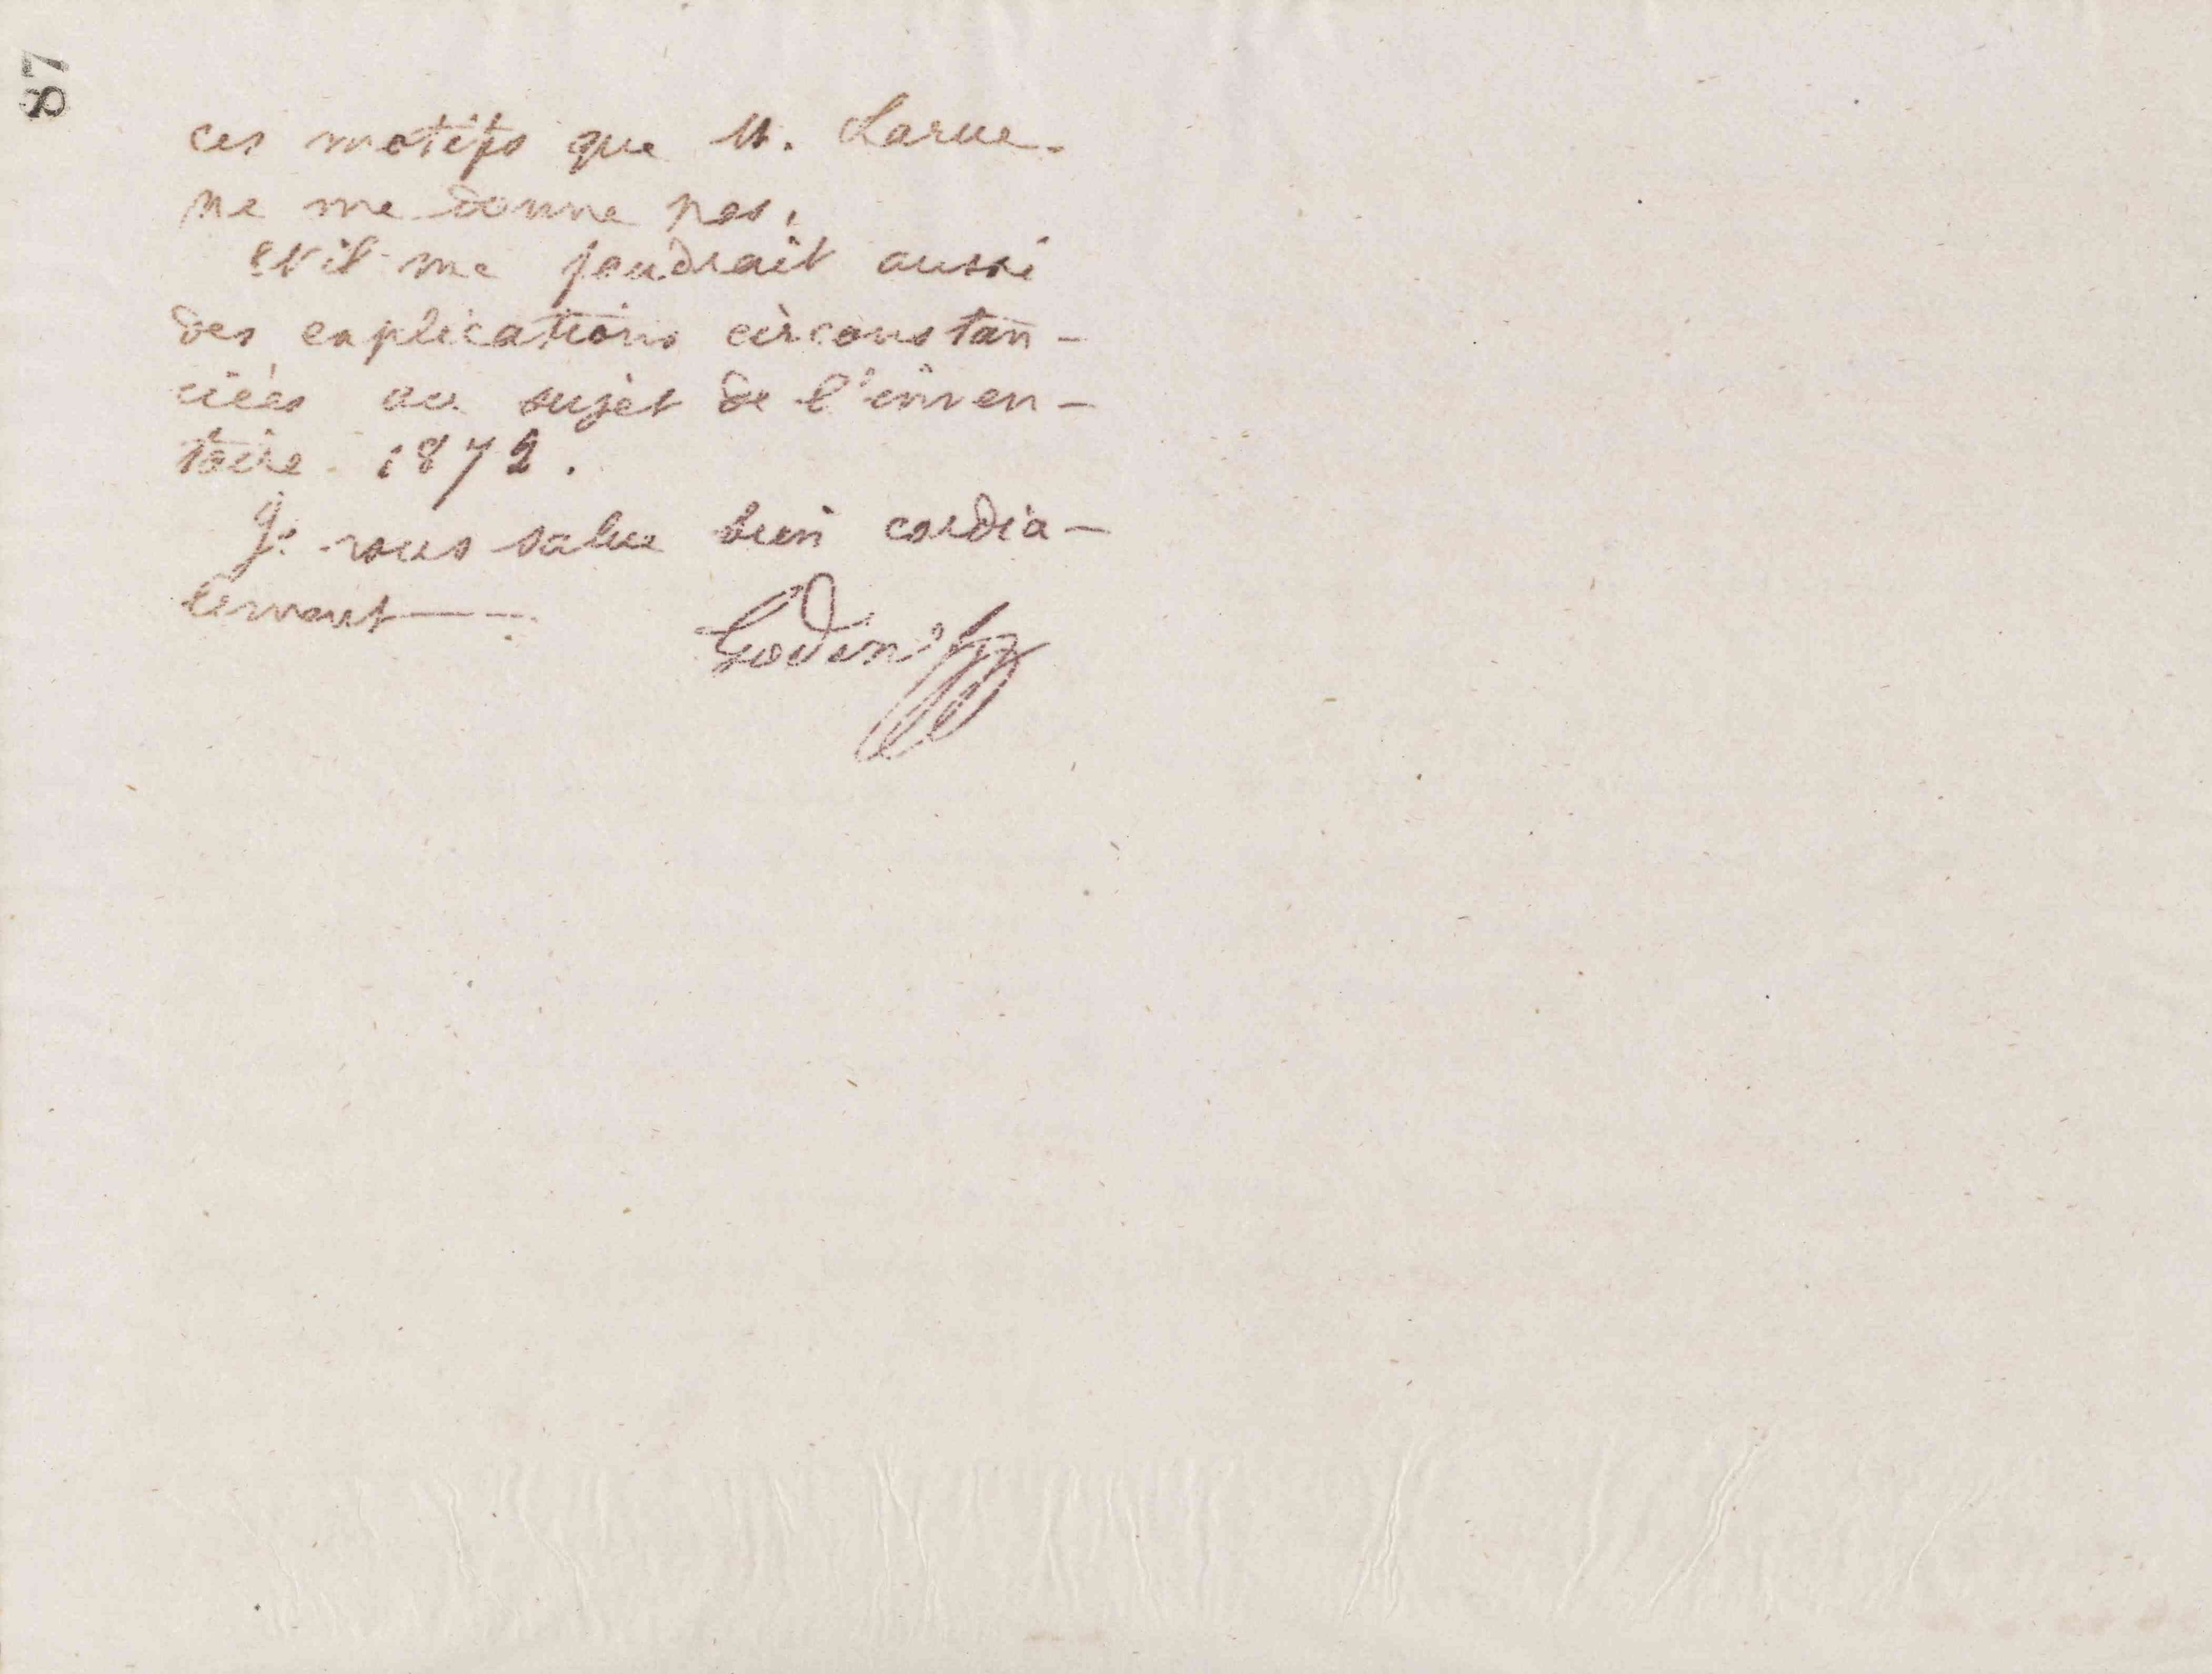 87
ces motifs que M. Larue
ne me donne pas.
Et il me faudrait aussi
des explications circonstan-
ciées au sujet de l'inven-
taire 1872.
Je vous salue bien cordia-
lement
Godin